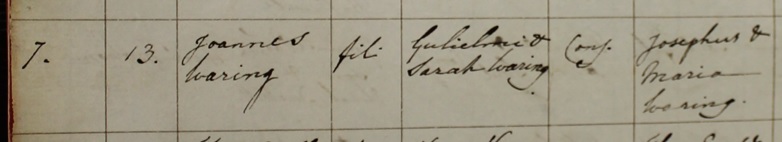 7. 13. Joannes fil. Gulielmi & Conj. Josephus &
Waring Sarah Waring Maria
Waring.